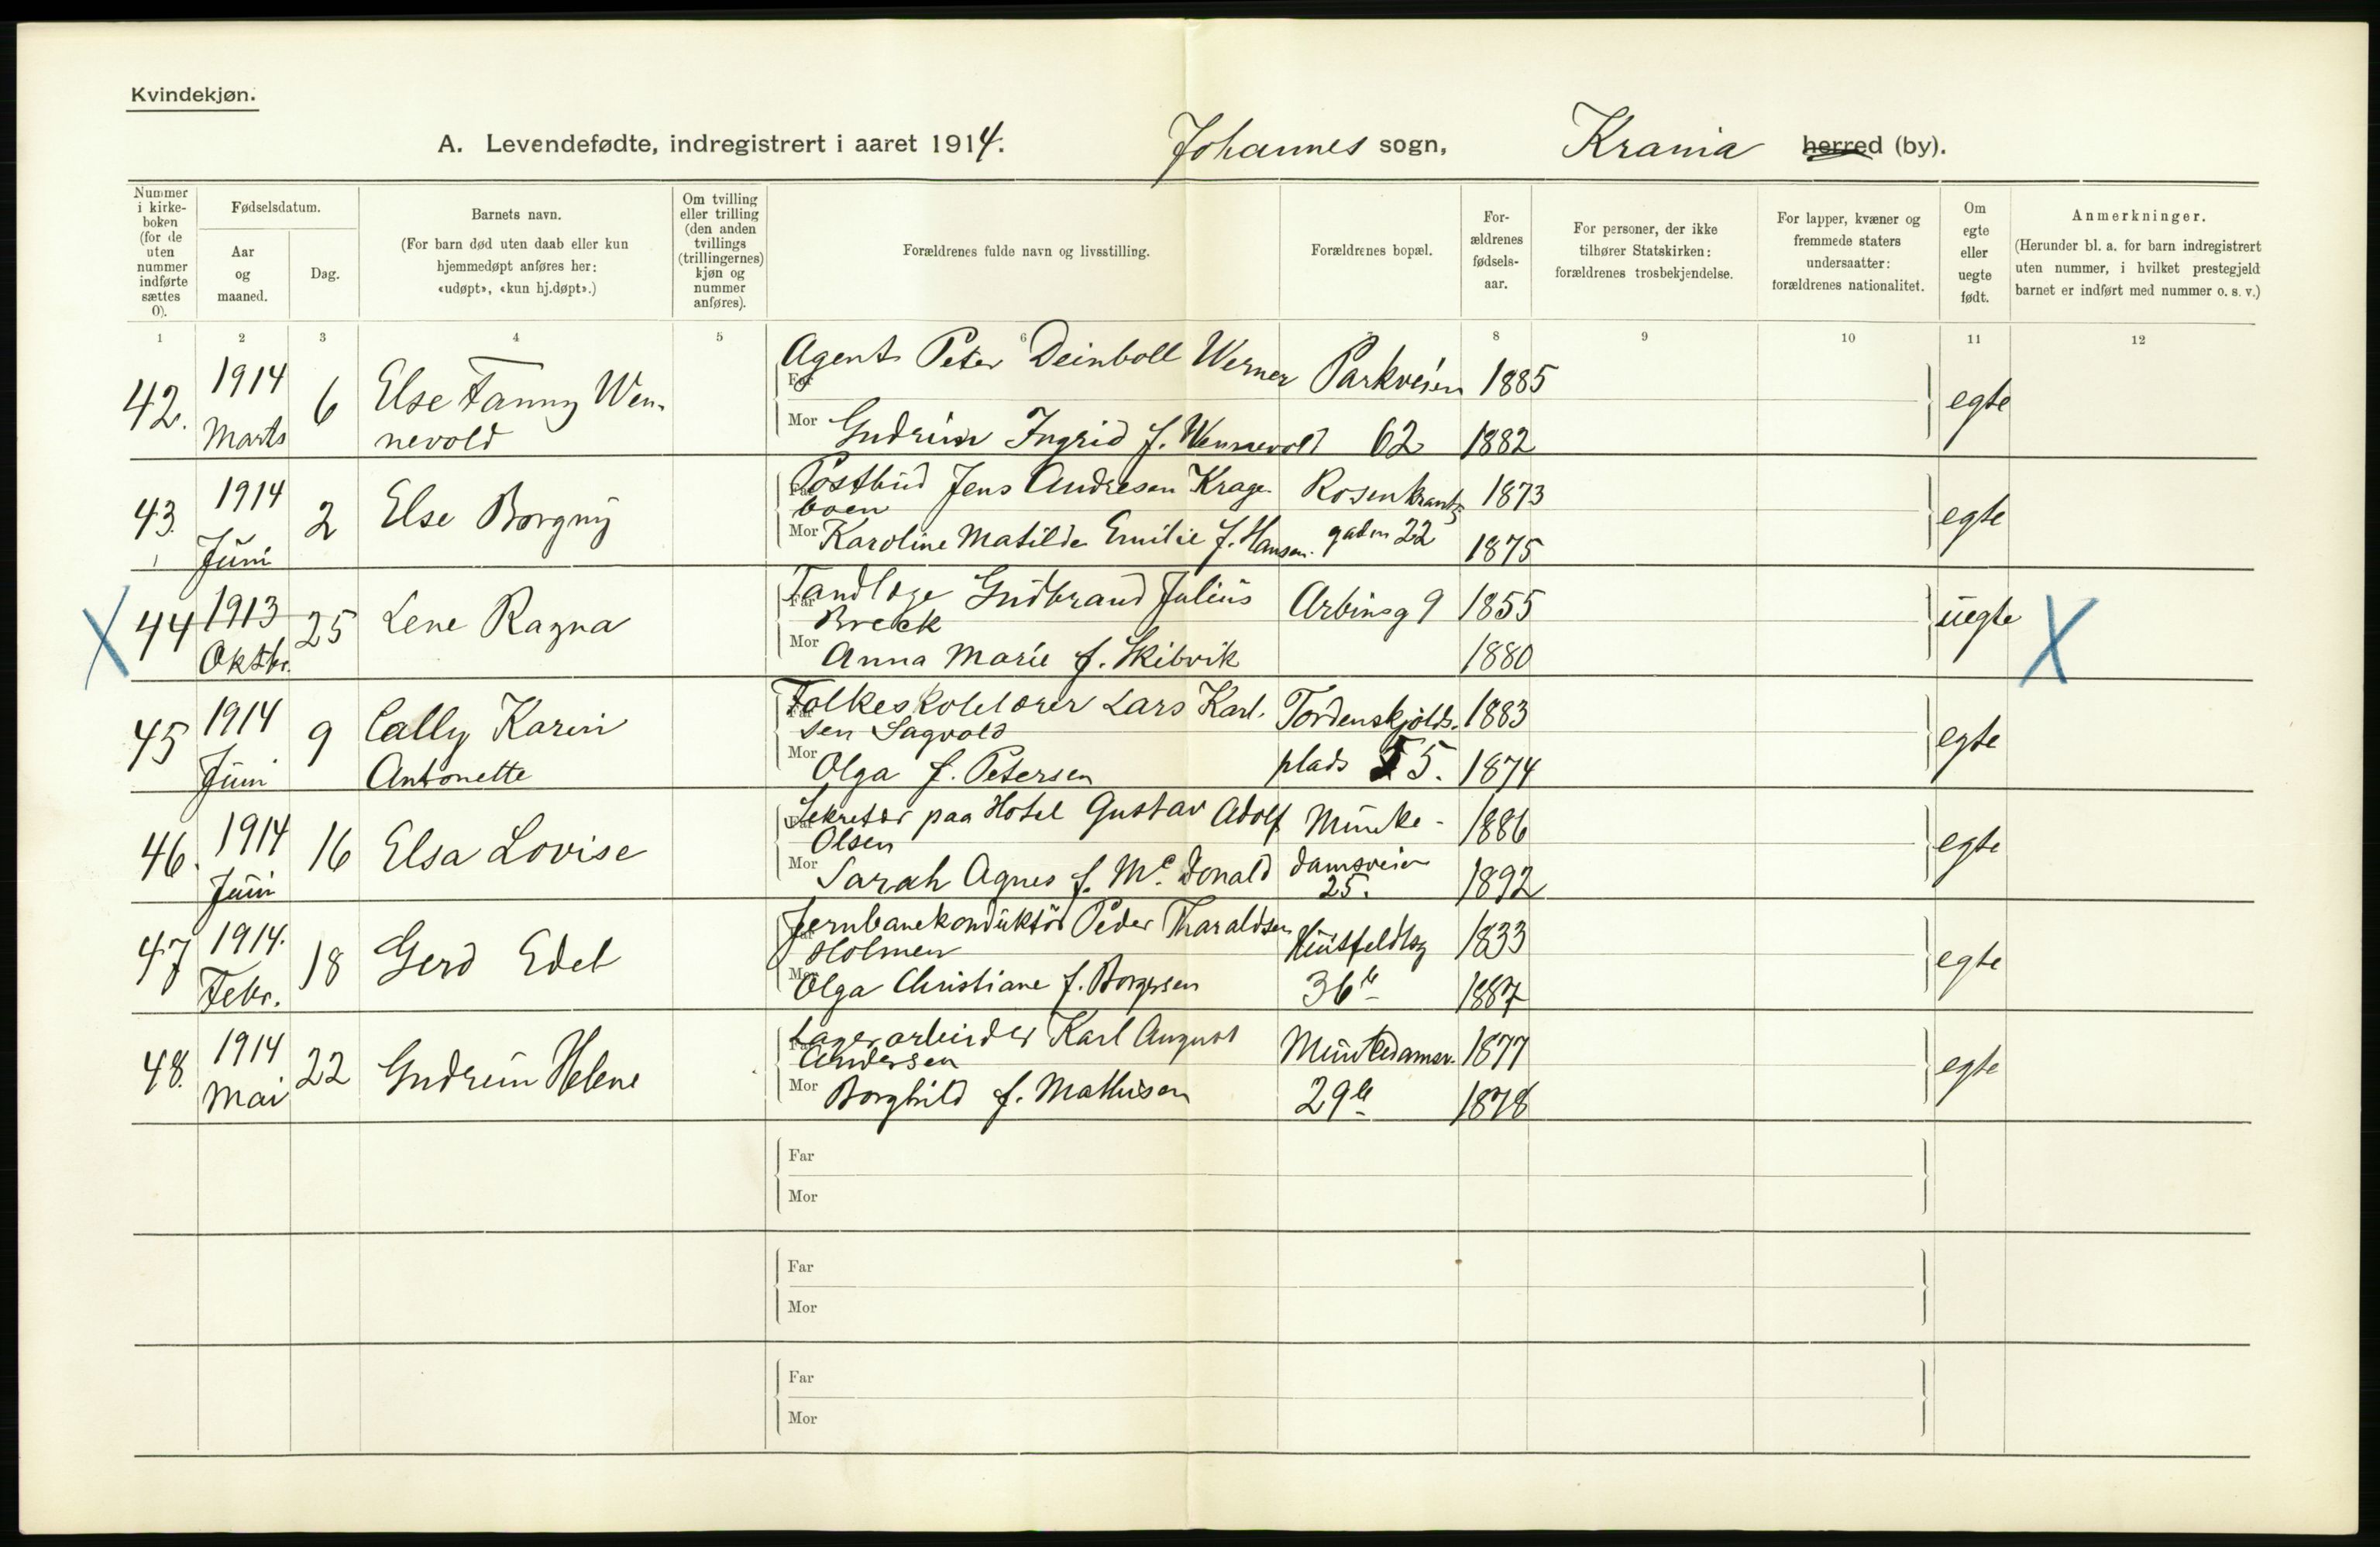 Kvindekjøn.
A. Levendefødte, indregistrert i aaret 1914. Johannes sogn, Krania herred (by).
Nummer i kirkeboken (for de uten nummer indførte sættes 0).
Fødselsdatum.
Aar og maaned.
Dag.
Barnets navn.
(For barn død uten daab eller kun hjemmedøpt anføres her: «udøpt», «kun hj.døpt».)
Om tvilling eller trilling (den anden tvillings (trillingernes) kjøn og nummer anføres).
Forældrenes fulde navn og livsstilling.
Forældrenes bopæl.
For-ældrenes fødsels-aar.
For personer, der ikke tilhører Statskirken: forældrenes trosbekjendelse.
For lapper, kvæner og fremmede staters undersaatter: forældrenes nationalitet.
Om egte eller uegte født.
Anmerkninger.
(Herunder bl. a. for barn indregistrert uten nummer, i hvilket prestegjeld barnet er indført med nummer o. s. v.)
1 2 3 4 5 6 8 9 10 11 12
42. 1914 Marts 6 Else Fanny Wen-
nevold
Far Agent Peter Deinboll Werner Parkveien 1885 egte
Mor Gudrun Ingrid f. Wennevold 62 1882
43. 1914 Juni 2 Else Borgny
Far Postbud Jens Andresen Krage-
boen Rosenkrantz 1873 egte
Mor Karoline Matilde Emilie f. Hansen. gaden 22 1875
X 44 1913 Oktbr. 25 Lene Ragna
Far Tandlæge Gudbrand Julius
Breck Arbinsg 9 1855 uegte X
Mor Anna Marie f. Skibvik 1880
45 1914 Juni 9 Cally Karin
Antonette
Far Folkeskolelærer Lars Karl-
sen Sagvold Tordenskjolds- 1883 egte
Mor Olga f. Petersen plads 5. 1874
46. 1914 Juni 16 Elsa Lovise
Far Sekretær paa Hotel Gustav Adolf
Olsen Munke- 1886 egte
Mor Sarah Agnes f. Mc. Donald damsveien
25. 1892
47 1914. Febr. 18 Gerd Edel
Far Jernbanekonduktør Peder Tharaldsen
Holmen Huitfeldtsg 1833 egte
Mor Olga Christiane f. Borgersen 36b 1887
48. 1914 Mai 22 Gudrun Helene
Far Lagerarbeider Karl August
Andersen Munkedamsv. 1877 egte
Mor Borghild f. Mathisen 29b 1878
Far
Mor
Far
Mor
Far
Mor